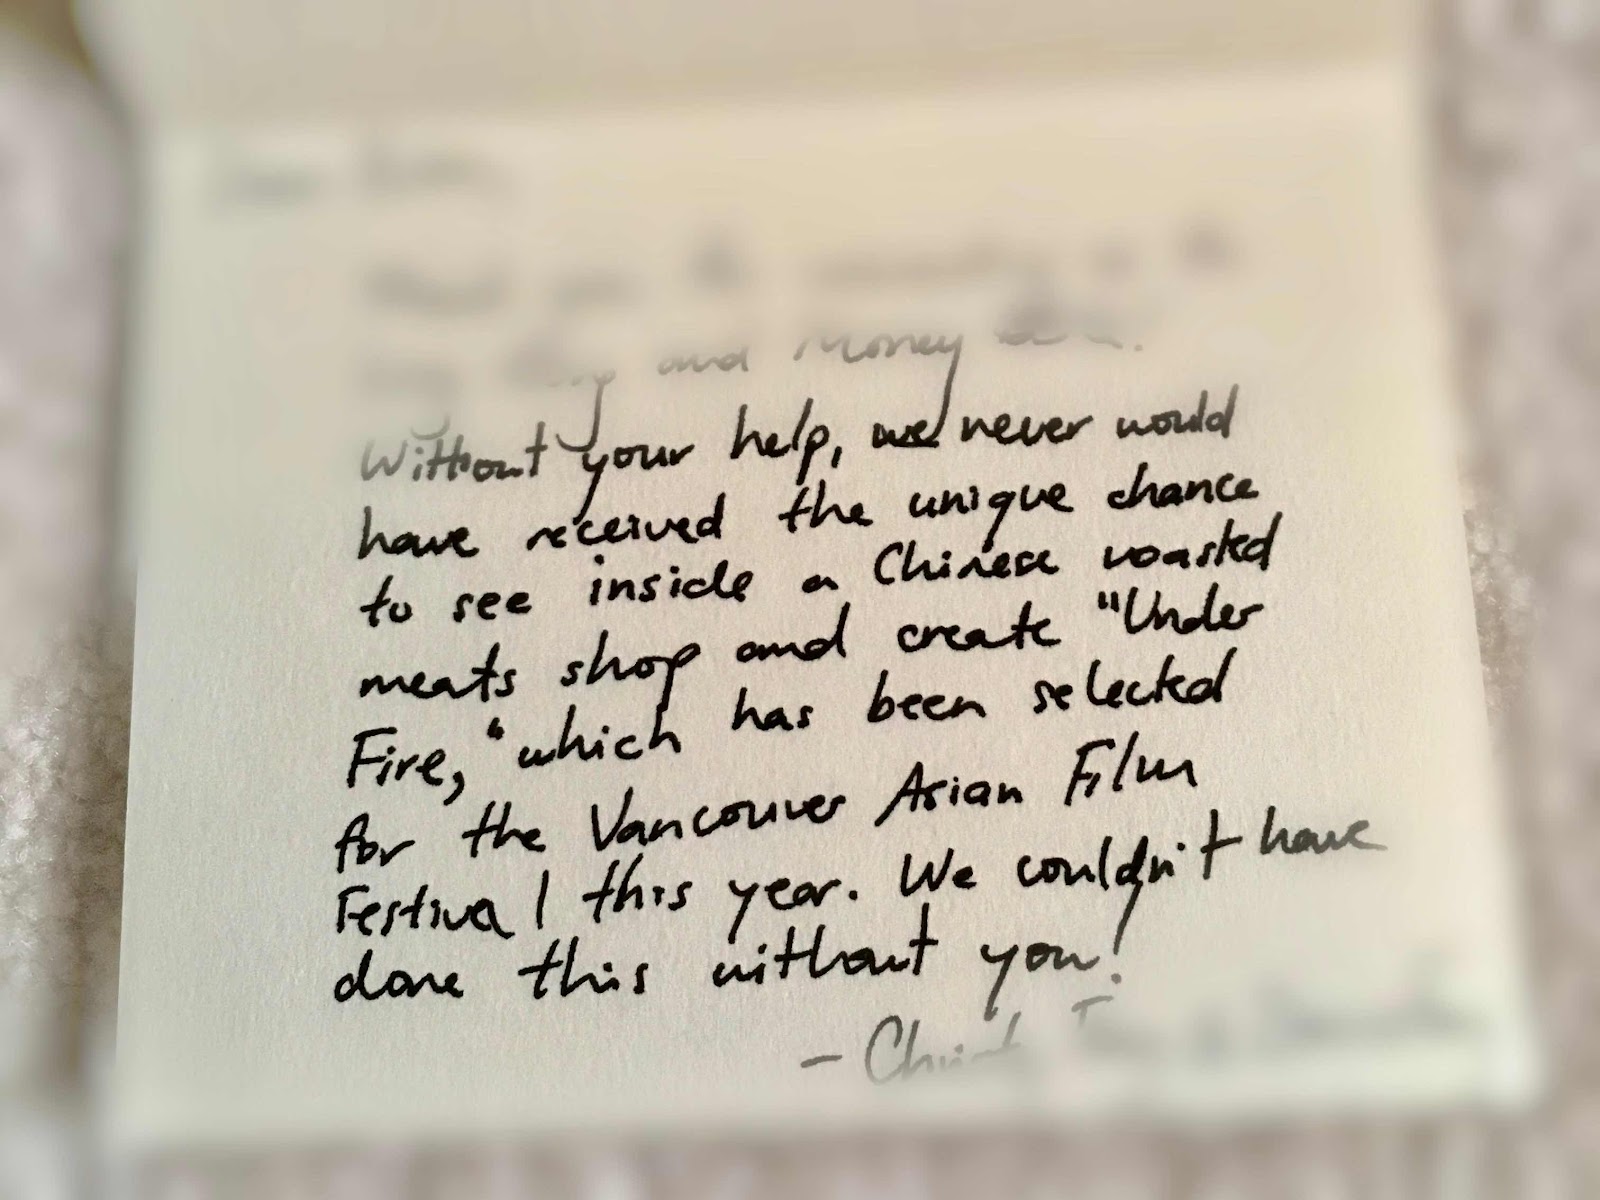 and Money
Without your help, we never would
have received the unique chance
to see inside a Chinese roasted
meats shop and create "Under
Fire," which has been selected
for the Vancouver Asian Film
Festival this year. We couldn't have
done this without you!